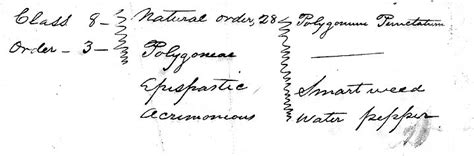 Class 8 - Natural order, 28 Polygonum Punctatum
Order - 3 - Polygoneae
Epispastic Smart weed
Acrimonious Water pepper